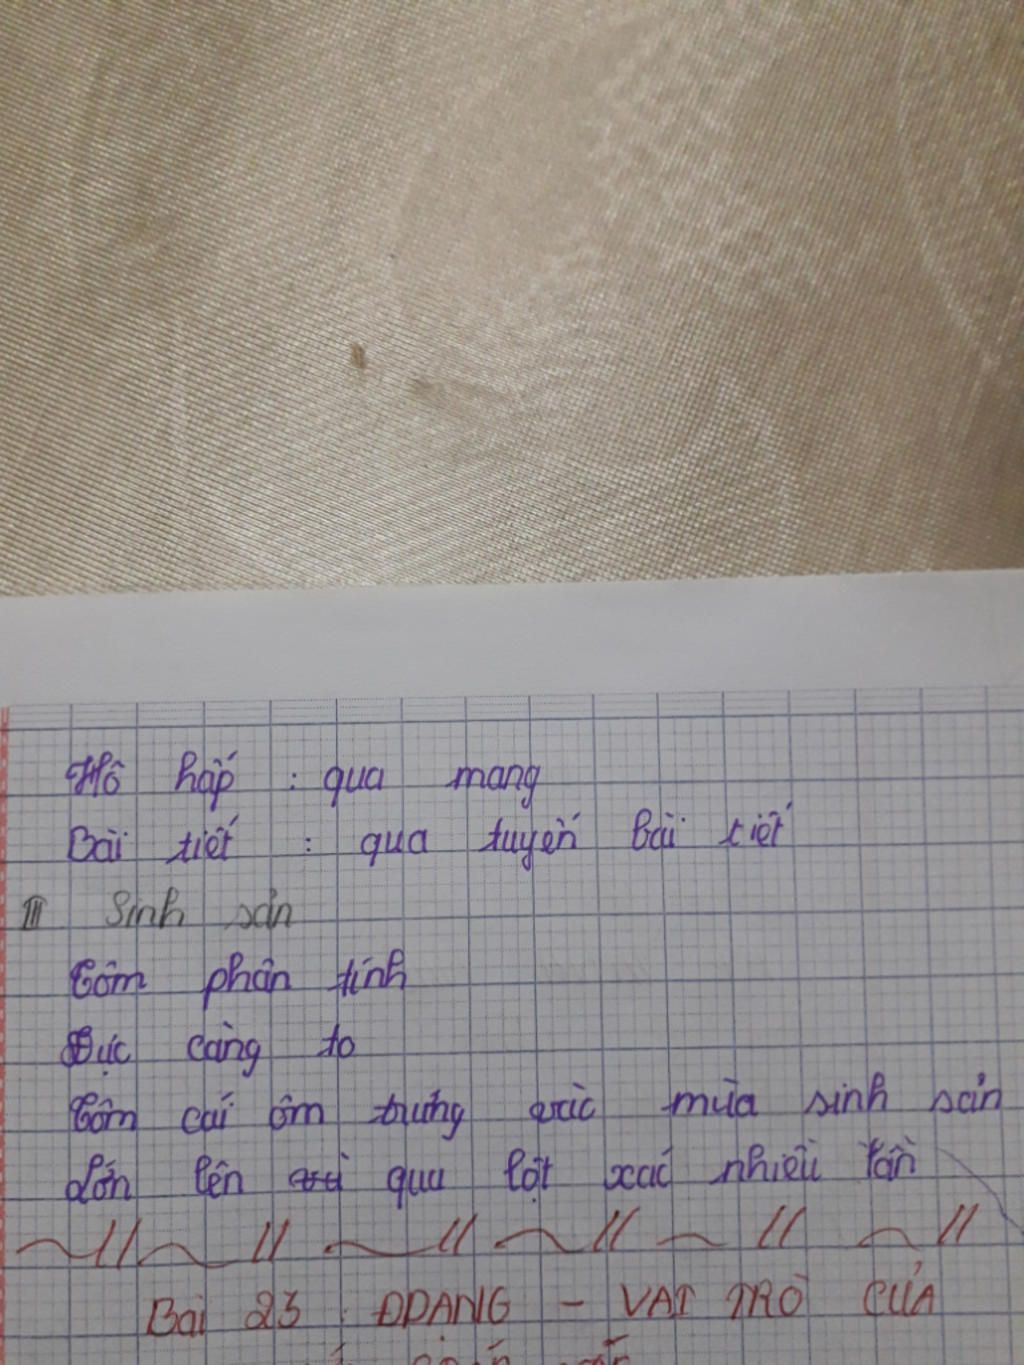 Hô hấp : qua mang
Bài tiết : qua tuyến bài tiết
III Sinh sản
Tôm phân tính
Đực càng to
Tôm cái ôm trứng vào mùa sinh sản
Lớn lên qua lột xác nhiều lần
Bài 23 : ĐDẠNG - VAI TRÒ CỦA